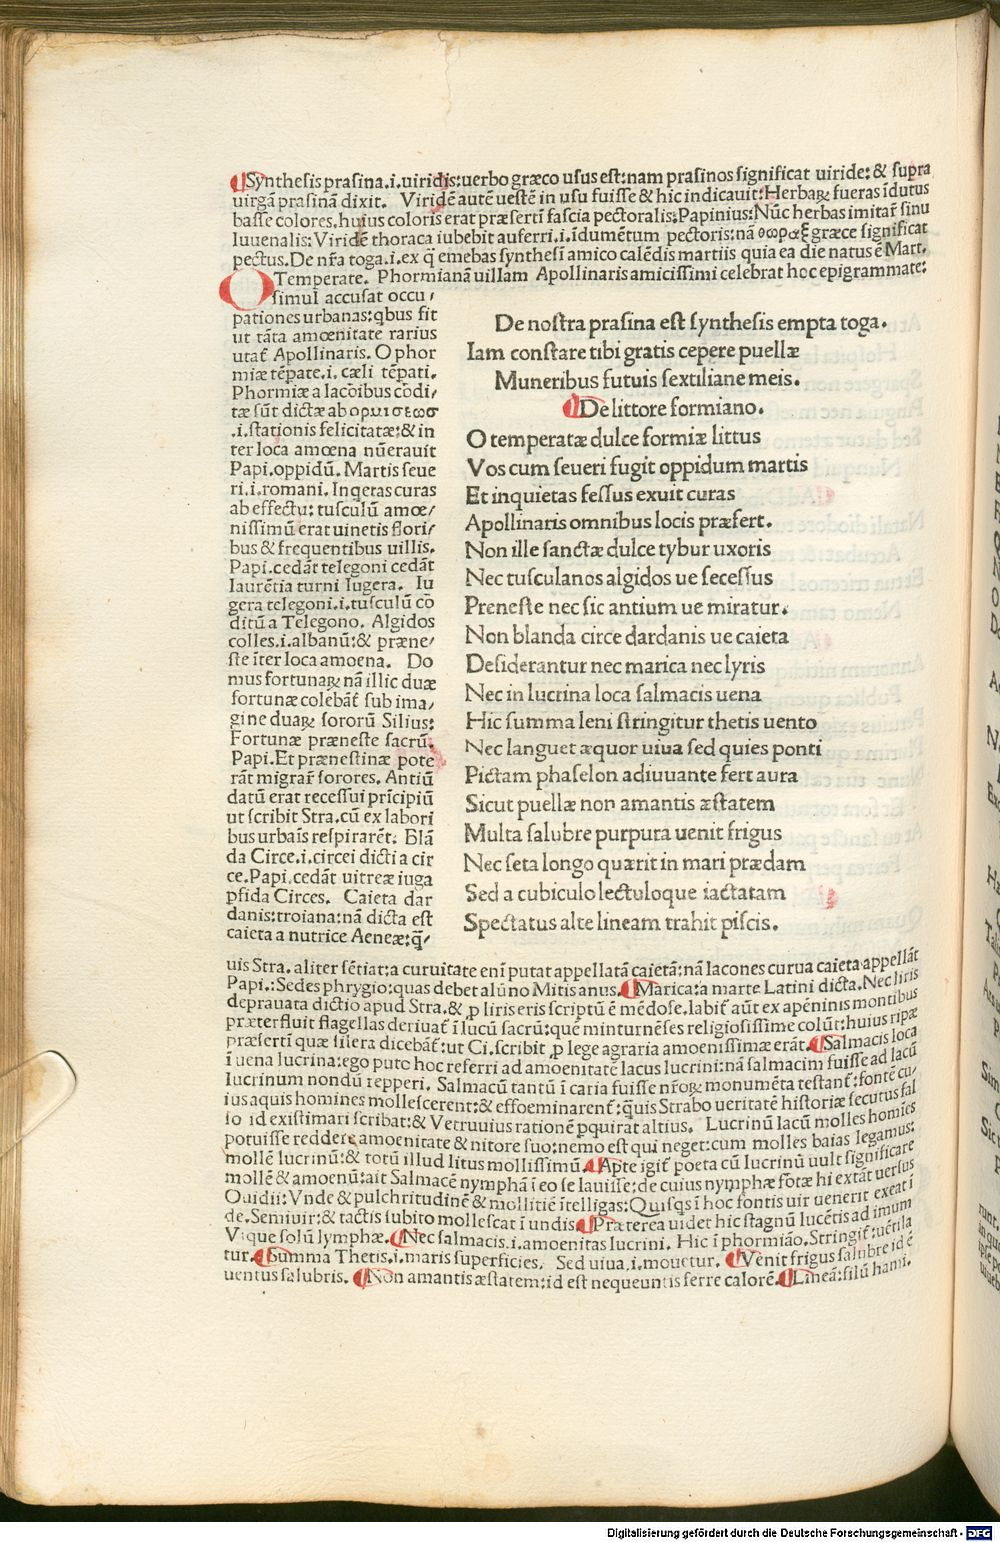 Synthesis prasina.i.uiridis:uerbo græco usus est:nam prasinos significat uiride: & supra
uirgā prasinā dixit. Viridē autē uestē in usu fuisse & hic indicauit:Herbaꝝ fueras īdutus
basse colores,huius coloris erat præsertī fascia pectoralis:Papinius:Nūc herbas imitat᷑ sinu
Iuuenalis:Viridē thoraca iubebit auferri.i.īdumētum pectoris:nā θωραξ græce significat
pectus.De nr̄a toga.i.ex q̄ emebas synthesī amico calēdis martiis quia ea die natus ē Mart.
O Temperate. Phormianā uillam Apollinaris amicissimi celebrat hoc epigrammate:
simul accusat occu/
pationes urbanas:qbus sit
ut tāta amœnitate rarius
utat᷑ Apollinaris. O phor
miæ tēpate.i. cæli tēpati.
Phormiæ a lacōibus cōdi/
tæ sūt dictæ ab ορμισεωσ
.i.stationis felicitatæ:& in
ter loca amœna nūerauit
Papi.oppidū. Martis seue
ri.i.romani. Inqetas curas
ab effectu: tusculū amœ/
nissimū erat uinetis flori/
bus & frequentibus uillis.
Papi.cedāt telegoni cedāt
laurētia turni Iugera. Iu
gera telegoni.i.tusculū cō
ditū a Telegono. Algidos
colles.i.albanū:& præne/
ste īter loca amoena. Do
mus fortunaꝝ nā illic duæ
fortunæ colebāt᷑ sub ima/
gine duaꝝ sororū Silius:
Fortunæ præneste sacrū.
Papi.Et prænestinæ pote
rāt migrari sorores. Antiū
datū erat recessui prīcipiū
ut scribit Stra.cū ex labori
bus urbaīs respirarēt. Blā
da Circe.i.circei dicti a cir
ce.Papi.cedāt uitreæ iuga
pfida Circes. Caieta dar
danis:troiana:nā dicta est
caieta a nutrice Aeneæ:q̄/
De nostra prasina est synthesis empta toga.
Iam constare tibi gratis cepere puellæ
Muneribus futuis sextiliane meis.
De littore formiano.
O temperatæ dulce formiæ littus
Vos cum seueri fugit oppidum martis
Et inquietas fessus exuit curas
Apollinaris omnibus locis præfert.
Non ille sanctæ dulce tybur uxoris
Nec tusculanos algidos ue secessus
Preneste nec sic antium ue miratur.
Non blanda circe dardanis ue caieta
Desiderantur nec marica nec lyris
Nec in lucrina loca salmacis uena
Hic summa leni stringitur thetis uento
Nec languet æquor uiua sed quies ponti
Pictam phaselon adiuuante fert aura
Sicut puellæ non amantis æstatem
Multa salubre purpura uenit frigus
Nec seta longo quærit in mari prædam
Sed a cubiculo lectuloque iactatam
Spectatus alte lineam trahit piscis.
uis Stra. aliter sētiat:a curuitate enī putat appellatā caietā:nā lacones curua caieta appellāt
Papi.:Sedes phrygio:quas debet alūno Mitis anus. Marica:a marte Latini dicta. Nec liris
deprauata dictio apud Stra. & ꝓ liris eris scriptū ē mēdose.labit᷑ aūt ex apēninis montibus
præterfluit flagellas deriuat᷑ ī lucū sacrū:quē minturnēses religiosissime colūt:huius ripæ
præsertī quæ silera dicebāt᷑:ut Ci.scribit ꝓ lege agraria amoenissimæ erāt. Salmacis loca
ī uena lucrina:ego puto hoc referri ad amoenitatē lacus lucrini:nā salmacim fuisse ad lacū
lucrinum nondū repperi. Salmacū tantū ī caria fuisse nr̄oꝝ monumēta testant᷑:fontē cu/
ius aquis homines mollescerent:& effoeminarent᷑:q̄uis Strabo ueritatē historiæ secutus fal
so id existimari scribat:& Vetruuius rationē pquirat altius. Lucrinū lacū molles homīes
potuisse reddere amoenitate & nitore suo:nemo est qui neget:cum molles baias legamus:
mollē lucrinū:& totū illud litus mollissimū. Apte igit᷑ poeta cū lucrinū uult significare
mollē & amoenū:ait Salmacē nymphā ī eo se lauisse:de cuius nymphæ fotæ hi extāt uersus
Ouidii:Vnde & pulchritudinē & mollitiē ītelligas:Quisqs ī hoc fontis uir uenerit exeat ī
de.Semiuir:& tactis subito mollescat ī undis. Præterea uidet hic stagnū lucētis ad imum
Vsque solū lymphæ. Nec salmacis.i.amoenitas lucrini. Hic ī phormiāo.Stringit᷑:uētila
tur. Summa Thetis.i.maris superficies. Sed uiua.i.mouetur. Venit frigus salubre id ē
uentus salubris. Non amantis æstatem:id est nequeuntis ferre calorē. Lineā:filū hami.
Digitalisierung gefördert durch die Deutsche Forschungsgemeinschaft - DFG